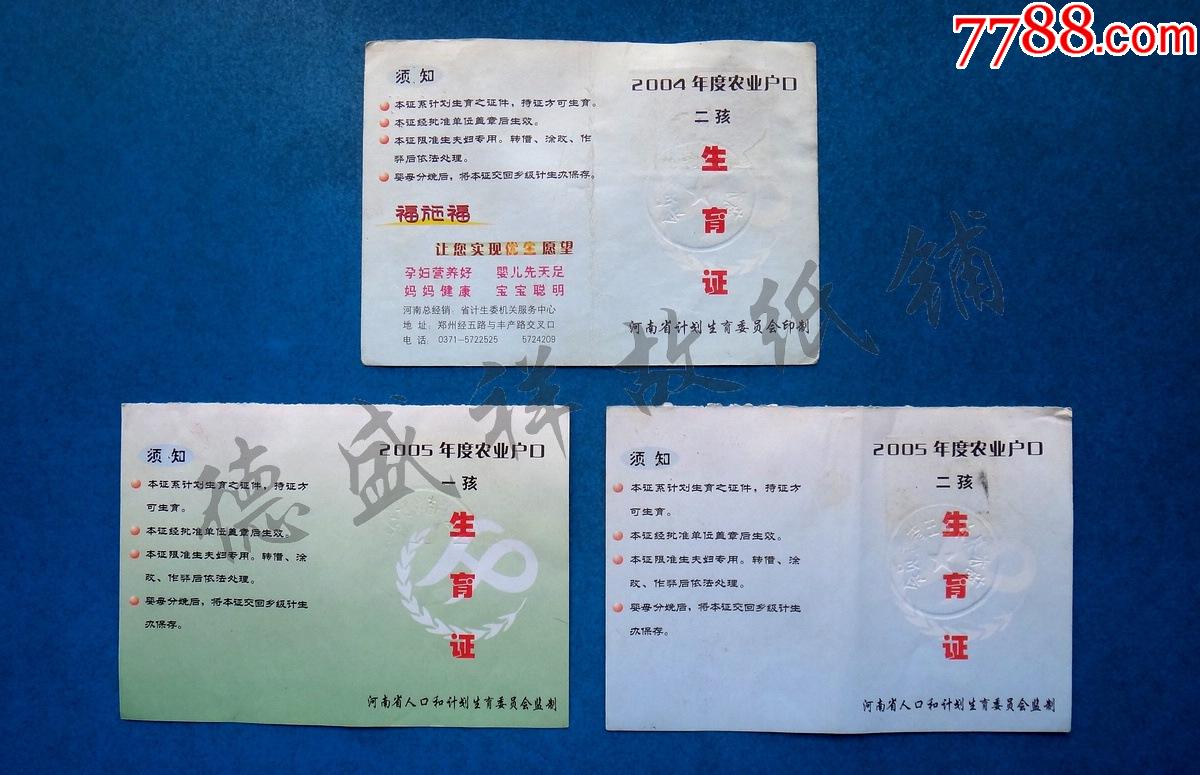 7788.com
须知
本证系计划生育之证件，持证方可生育。
本证经批准单位盖章后生效。
本证限准生夫妇专用。转借、涂改、作
弊后依法处理。
婴母分娩后，将本证交回乡级计生办保存。
福施福
让您实现优生愿望
孕妇营养好 婴儿先天足
妈妈健康 宝宝聪明
河南总经销：省计生委机关服务中心
地 址：郑州经五路与丰产路交叉口
电 话：0371-5722525 5724209
2004年度农业户口
二孩
生
育
证
河南省计划生育委员会印制
须知
本证系计划生育之证件，持证方
可生育。
本证经批准单位盖章后生效。
本证限准生夫妇专用。转借、涂
改、作弊后依法处理。
婴母分娩后，将本证交回乡级计生
办保存。
2005年度农业户口
一孩
生
育
证
河南省人口和计划生育委员会监制
须知
本证系计划生育之证件，持证方
可生育。
本证经批准单位盖章后生效。
本证限准生夫妇专用。转借、涂
改、作弊后依法处理。
婴母分娩后，将本证交回乡级计生
办保存。
2005年度农业户口
二孩
生
育
证
河南省人口和计划生育委员会监制
德盛祥故纸铺